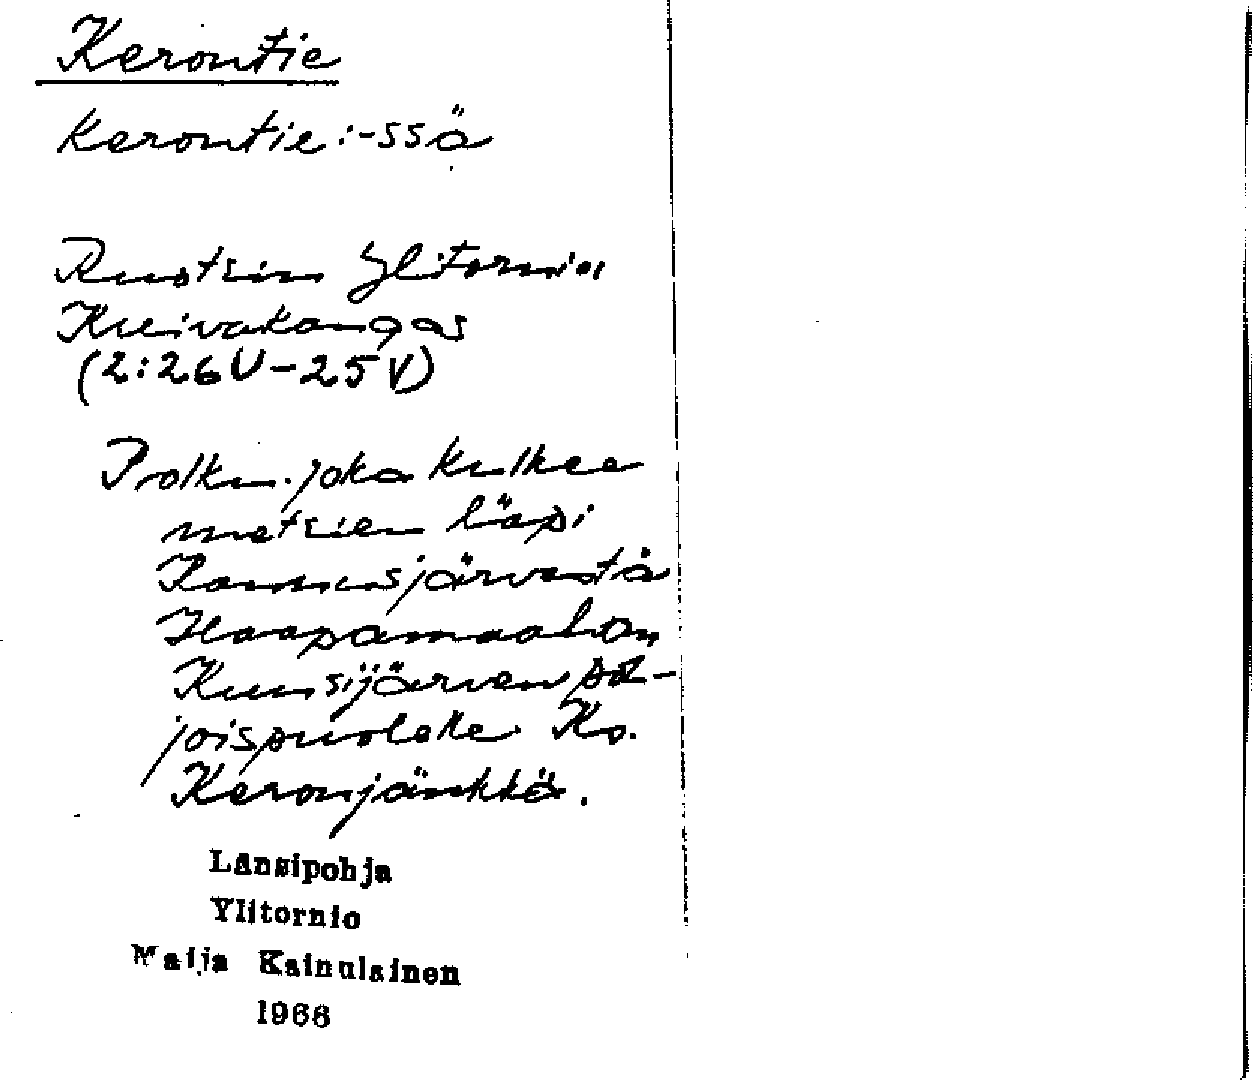 Kerontie
Kerontie:-ssä
Ruotsin Ylitornion
Kuivakangas
(2:26U-25V)
Polku, joka kulkee
metsien läpi
Kannusjärvestä
Haapamaahan
Kuusijärven poh-
joispuolelle. Ks.
Keronjänkkä.
Länsipohja
Ylitornio
Maija Kainulainen
1966